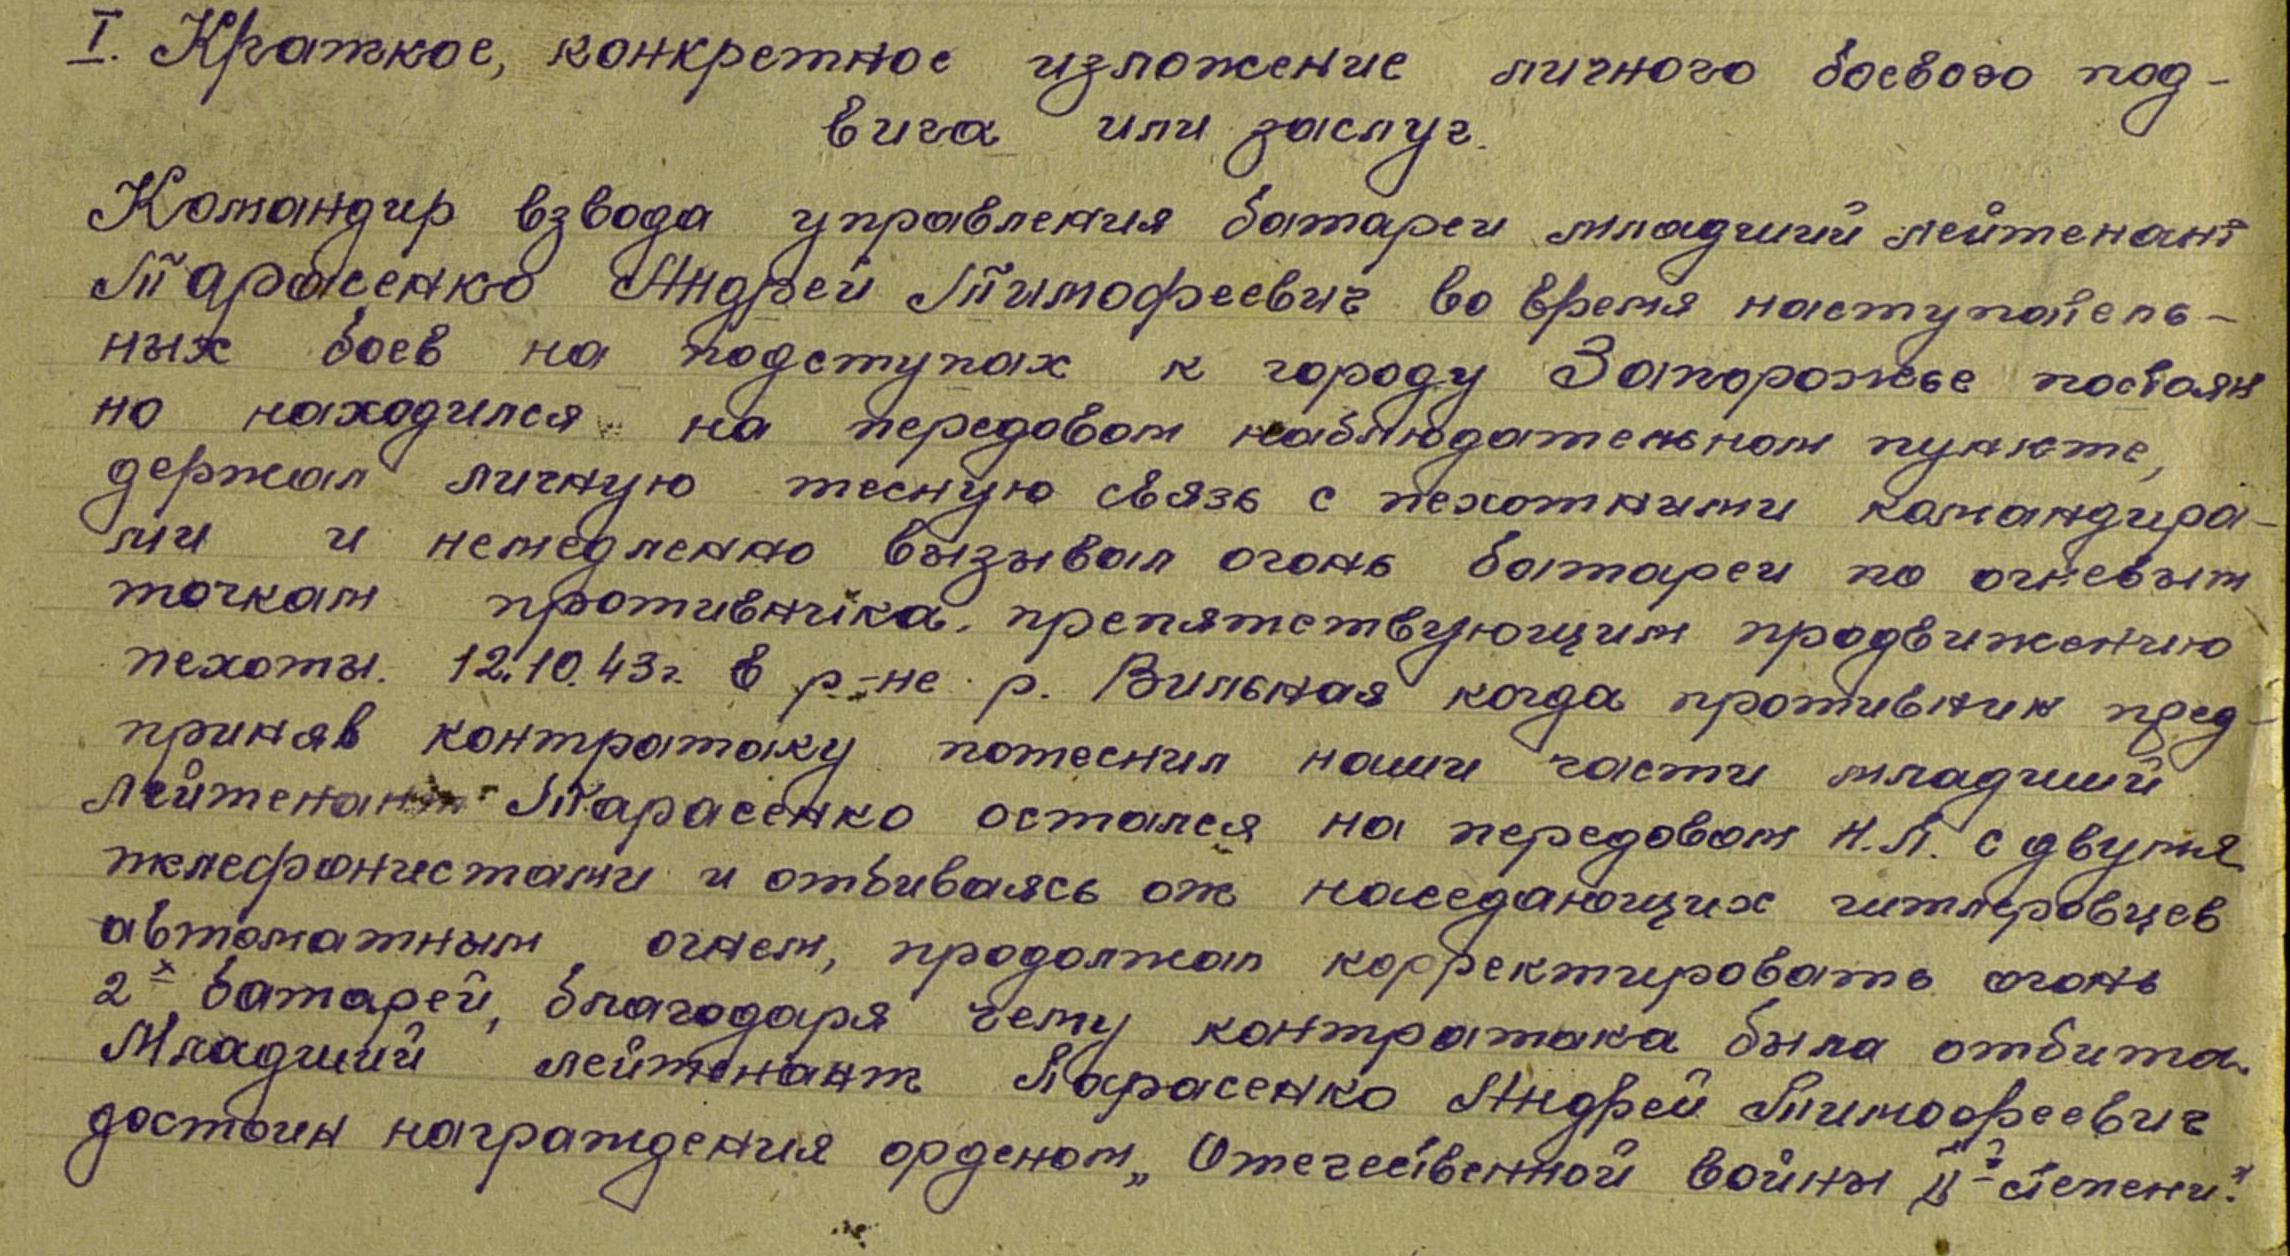 I. Краткое, конкретное изложение личного боевого под-
вига или заслуг.
Командир взвода управления батареи младший лейтенант
Тарасенко Андрей Тимофеевич во время наступатель-
ных боев на подступах к городу Запорожье постоян
но находился на передовом наблюдательном пункте,
держал личную тесную связь с пехотными командира-
ми и немедленно вызывал огонь батареи по огневым
точкам противника, препятствующим продвижению
пехоты. 12.10.43г. в р-не р. Вильная когда противник пред-
приняв контратаку потеснил наши части младший
лейтенант Тарасенко остался на передовом Н.П. с двумя
телефонистами и отбиваясь от наседающих гитлеровцев
автоматным огнем, продолжал корректировать огонь
2х батарей, благодаря чему контратака была отбита.
Младший лейтенант Тарасенко Андрей Тимофеевич
достоин награждения орденом „Отечественной войны II й степени."